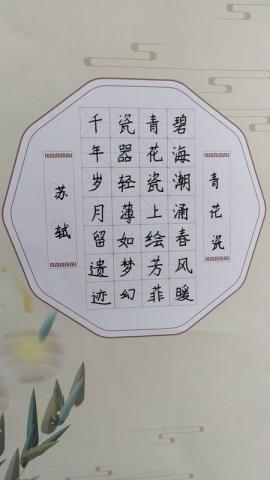 青花瓷
碧海潮涌春风暖
青花瓷上绘芳菲
瓷器轻薄如梦幻
千年岁月留遗迹
苏轼